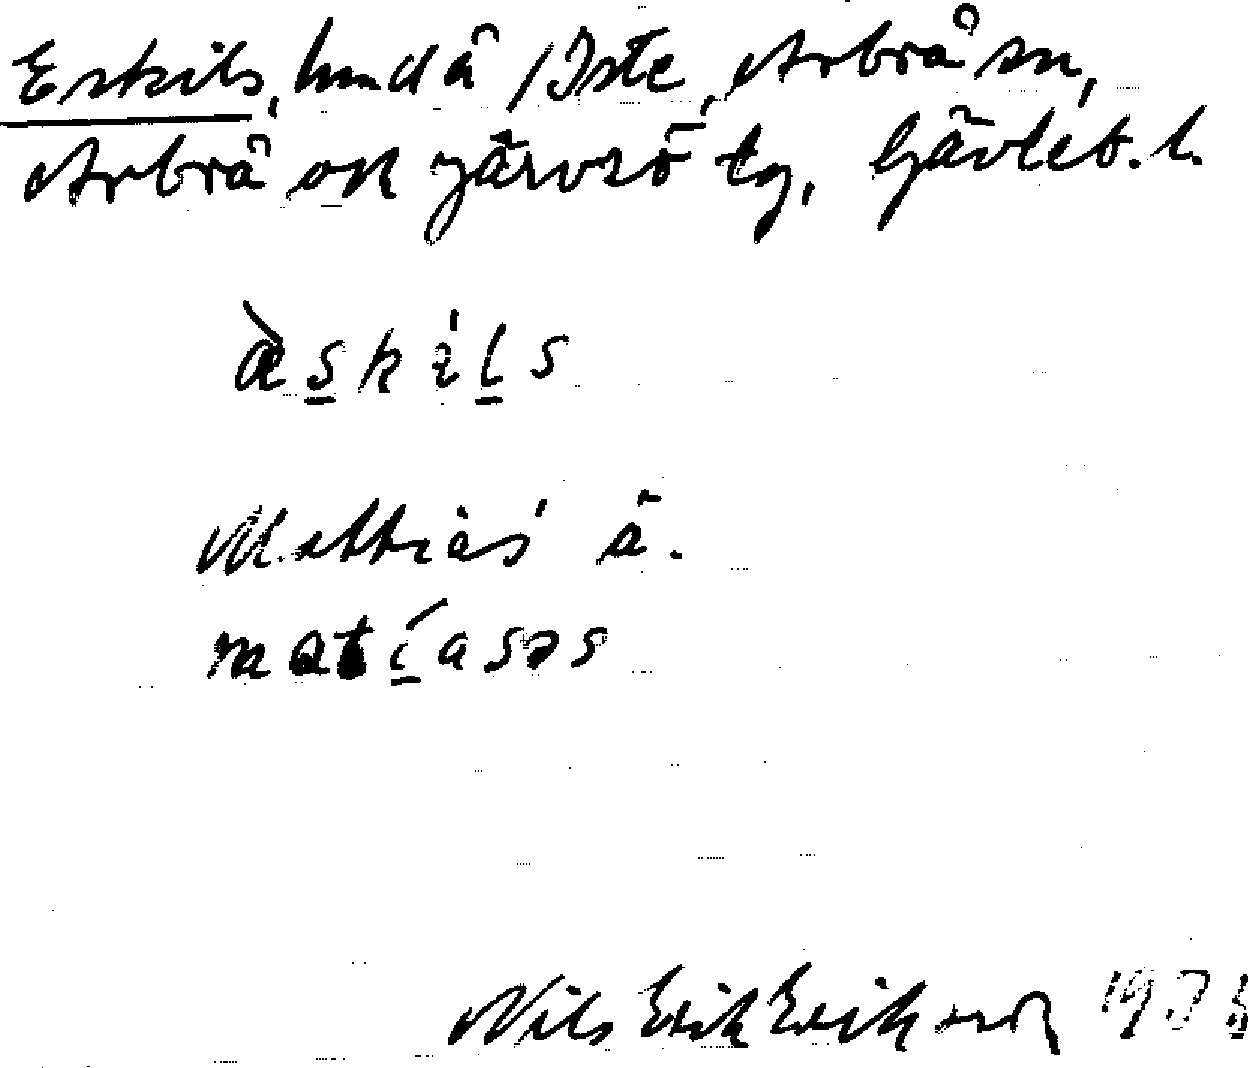 Eskils, hmd å /Iste, Arbrå sn,
Arbrå ok Järvsö tg, Gävleb. l.
æ̀skils
Mattias' ä.
matíasəs
Nils Erik Erikson 193